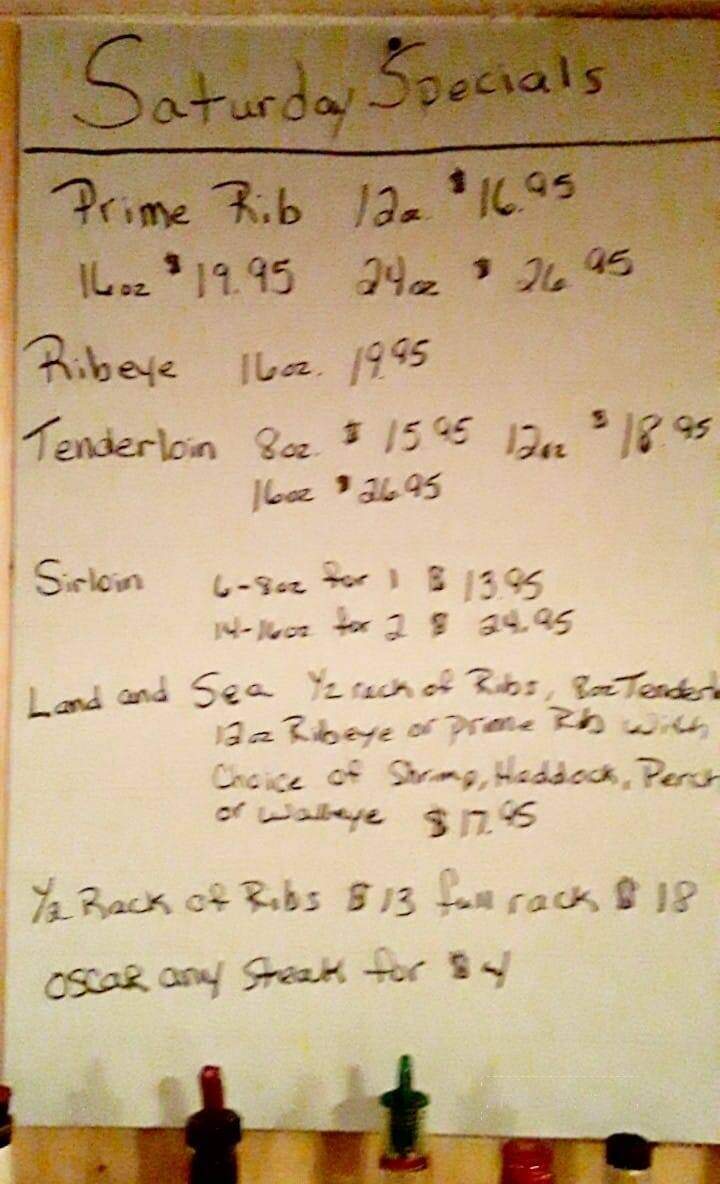 Saturday Specials
Prime Rib 12oz. $16.95
16oz $19.95 24oz $26.95
Ribeye 16oz. 19.95
Tenderloin 8oz. $15.95 12oz $18.95
16oz $26.95
Sirloin 6-8oz for 1 $13.95
14-16oz for 2 $24.95
Land and Sea 1/2 rack of Ribs, 8oz Tenderl
12oz Ribeye or Prime Rib with
Choice of Shrimp, Haddock, Perch
or Walleye $17.95
1/2 Rack of Ribs $13 full rack $18
OSCAR any Steak for $4